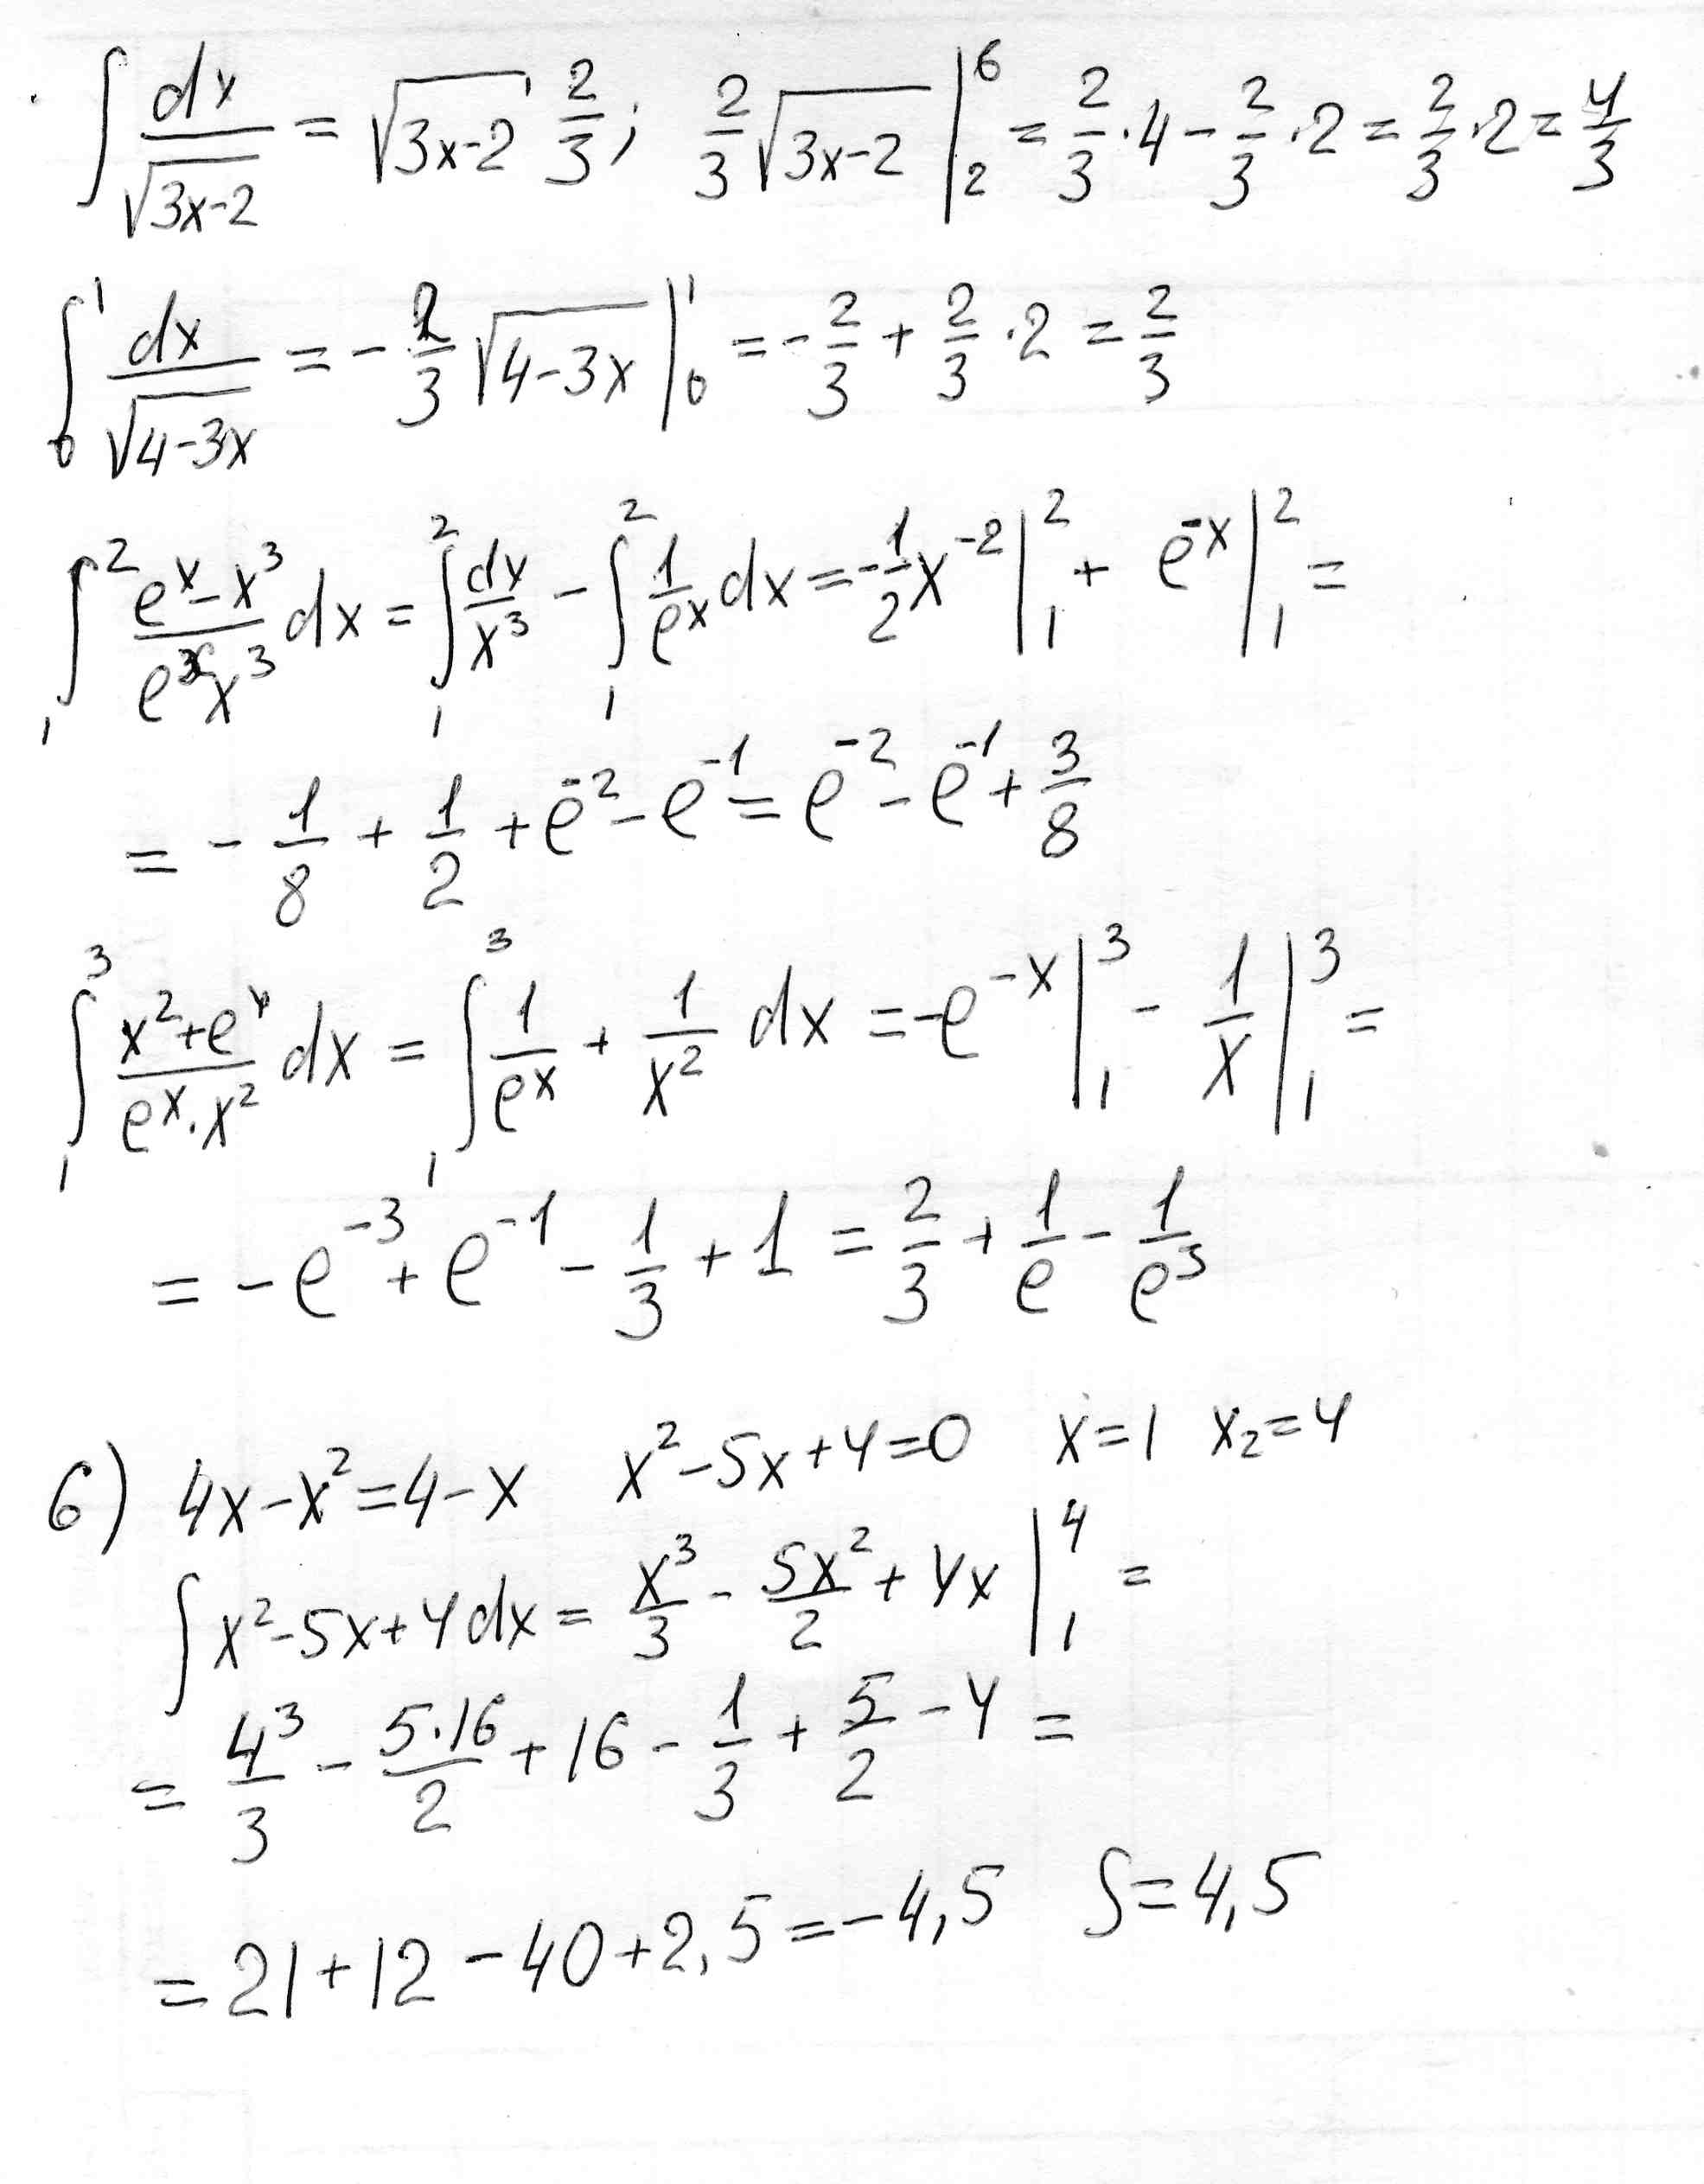 ∫ dx/√(3x-2) = √(3x-2) · 2/3; 2/3 √(3x-2) |₂⁶ = 2/3 · 4 - 2/3 · 2 = 2/3 · 2 = 4/3
∫₀¹ dx/√(4-3x) = - 2/3 √(4-3x) |₀¹ = - 2/3 + 2/3 · 2 = 2/3
∫₁² (eˣ - x³)/(eˣx³) dx = ∫₁² dx/x³ - ∫₁² 1/eˣ dx = - 1/2 x⁻² |₁² + e⁻ˣ |₁² =
= - 1/8 + 1/2 + e⁻² - e⁻¹ = e⁻² - e⁻¹ + 3/8
∫₁³ (x² + eˣ)/(eˣ · x²) dx = ∫₁³ 1/eˣ + 1/x² dx = -e⁻ˣ |₁³ - 1/x |₁³ =
= -e⁻³ + e⁻¹ - 1/3 + 1 = 2/3 + 1/e - 1/e³
6) 4x - x² = 4 - x x² - 5x + 4 = 0 x = 1 x₂ = 4
∫ x² - 5x + 4 dx = x³/3 - 5x²/2 + 4x |₁⁴ =
= 4³/3 - 5·16/2 + 16 - 1/3 + 5/2 - 4 =
= 21 + 12 - 40 + 2,5 = -4,5 S = 4,5